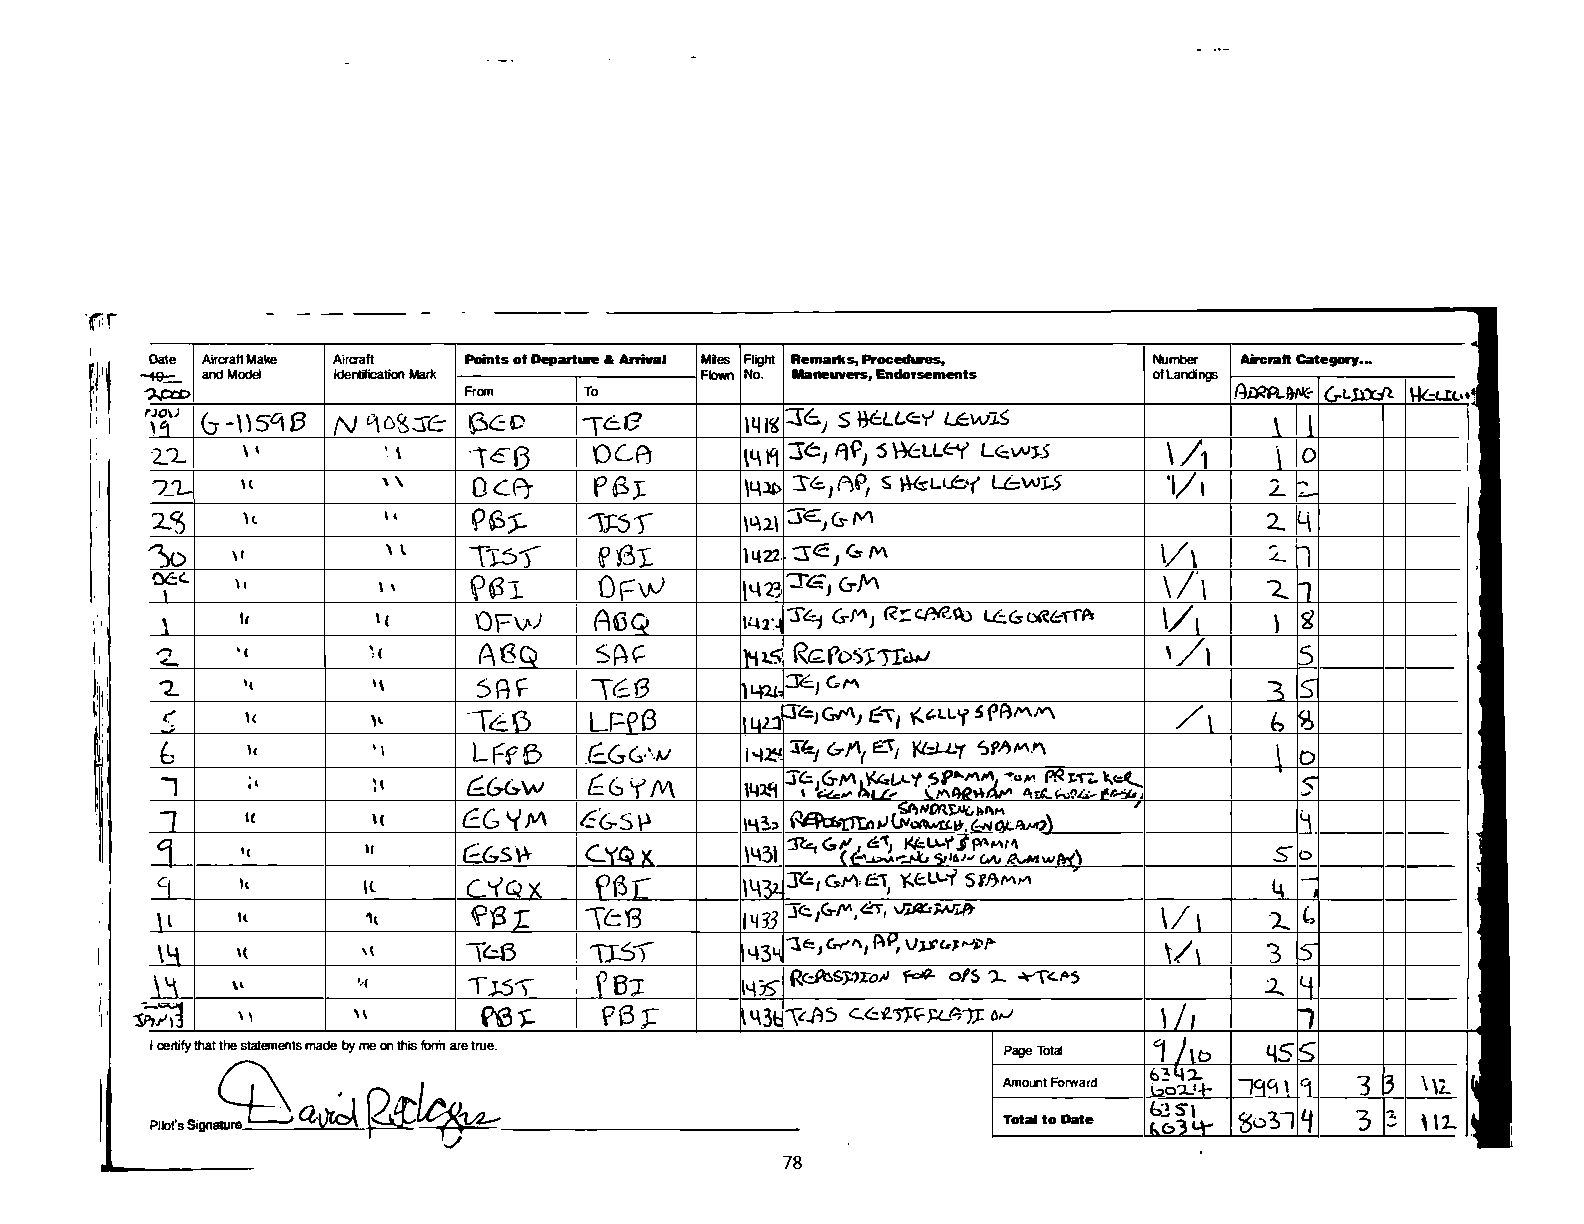 Date Aircraft Make Aircraft Points of Departure & Arrival Miles Flight Remarks, Procedures, Number Aircraft Category...
19 and Model Identification Mark Flown No. Maneuvers, Endorsements of Landings
2000 From To AIRPLANE GLIDER
NOV
19 G-1159B N908JE BED TEB 1418 JE, SHELLEY LEWIS 1 1
22 " " TEB DCA 1419 JE, AP, SHELLEY LEWIS 1/1 1 0
22 " " DCA PBI 1420 JE, AP, SHELLEY LEWIS 1/1 2 2
28 " " PBI TIST 1421 JE, GM 2 4
30 " " TIST PBI 1422 JE, GM 1/1 2 7
DEC
1 " " PBI DFW 1423 JE, GM 1/1 2 7
1 " " DFW ABQ 1424 JE, GM, RICARDO LEGORETTA 1/1 1 8
2 " " ABQ SAF 1425 REPOSITION 1/1 5
2 " " SAF TEB 1426 JE, GM 3 5
5 " " TEB LFPB 1427 JE, GM, ET, KELLY SPAMM /1 6 8
6 " " LFPB EGGW 1428 JE, GM, ET, KELLY SPAMM 1 0
7 " " EGGW EGYM 1429 JE, GM, KELLY SPAMM, TOM PRITZKER 5
1 FEMALE (MARHAM AIR FORCE BASE)
SANDRINGHAM
7 " " EGYM EGSH 1430 REPOSITION (NORWICH, ENGLAND) 4
9 " " EGSH CYQX 1431 JE, GM, ET, KELLY SPAMM 5 0
(BLOWING SNOW ON RUNWAY)
9 " " CYQX PBI 1432 JE, GM, ET, KELLY SPAMM 4 7
11 " " PBI TEB 1433 JE, GM, ET, VIRGINIA 1/1 2 6
14 " " TEB TIST 1434 JE, GM, AP, VIRGINIA 1/1 3 5
14 " " TIST PBI 1435 REPOSITION FOR OPS 2 + TCAS 2 4
JAN 13 " " PBI PBI 1436 TCAS CERTIFICATION 1/1 7
I certify that the statements made by me on this form are true. Page Total 9/10 45 5
Amount Forward 6342 6024 7991 9 3 3 112
Pilot's Signature David Rodgers Total to Date 6351 6034 8037 4 3 3 112
78